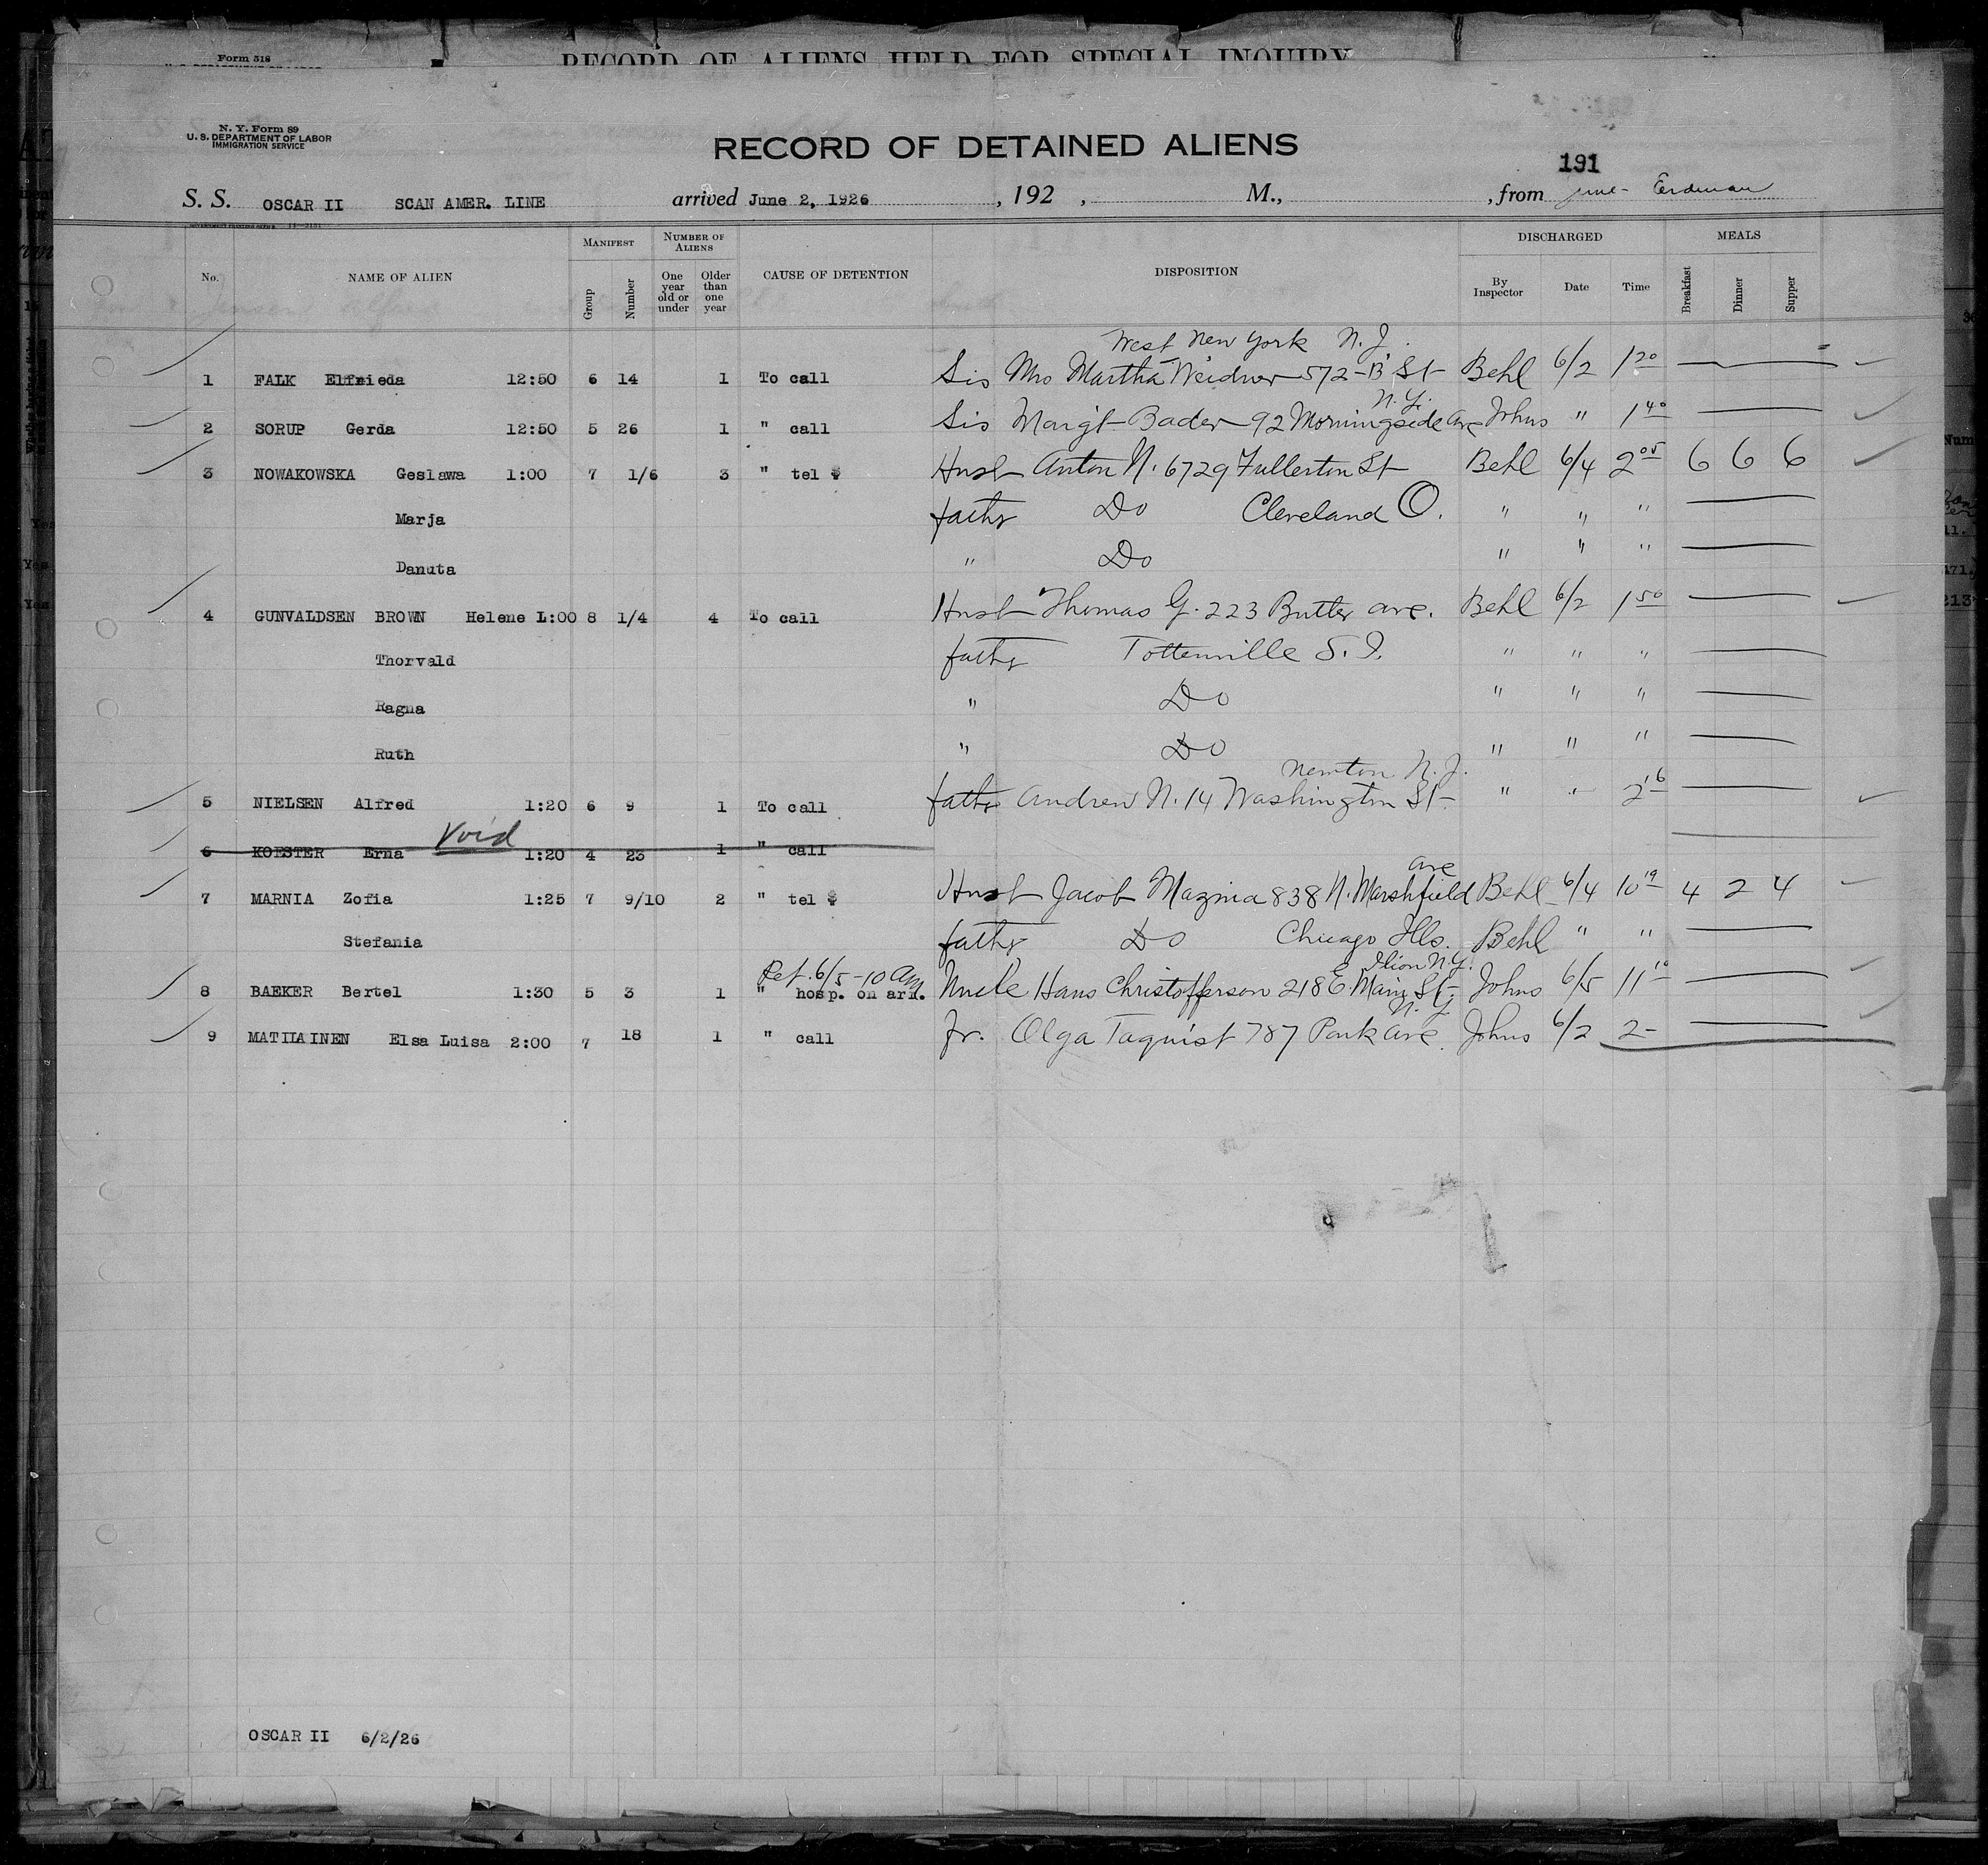 Form 518
RECORD OF ALIENS HELD FOR SPECIAL INQUIRY
N. Y. Form 89
U. S. DEPARTMENT OF LABOR
IMMIGRATION SERVICE
RECORD OF DETAINED ALIENS
191
S. S. OSCAR II SCAN AMER. LINE arrived June 2, 1926 , 192 , M., , from Erdman
No. NAME OF ALIEN MANIFEST Group Number NUMBER OF ALIENS One year old or under Older than one year CAUSE OF DETENTION DISPOSITION DISCHARGED By Inspector Date Time MEALS Breakfast Dinner Supper
West New York N.J.
1 FALK Elfrieda 12:50 6 14 1 To call Sis Mrs Martha Weidner 572-B St Behl 6/2 1 20
N.Y.
2 SORUP Gerda 12:50 5 26 1 " call Sis Margt Bader 92 Morningside Ave Johns " 1 40
3 NOWAKOWSKA Geslawa 1:00 7 1/6 3 " tel $ Husb Anton N. 6729 Fullerton St Behl 6/4 2 05 6 6 6
Marja father Do Cleveland O. " " "
Danuta " Do " " "
4 GUNVALDSEN BROWN Helene 1:00 8 1/4 4 To call Husb Thomas G. 223 Butler ave. Behl 6/2 1 50
Thorvald father Tottenville S.I. " " "
Ragna " Do " " "
Ruth " Do " " "
Newton N.J.
5 NIELSEN Alfred 1:20 6 9 1 To call father Andrew N. 14 Washington St " " 2 16
Void
6 KOESTER Erna 1:20 4 23 1 " call
ave
7 MARNIA Zofia 1:25 7 9/10 2 " tel $ Husb Jacob Maznia 838 N. Marshfield Behl 6/4 10 19 4 2 4
Stefania father Do Chicago Ills. Behl " "
Ret. 6/5-10 am Ilion N.Y.
8 BAEKER Bertel 1:30 5 3 1 " hosp. on arr. Uncle Hans Christofferson 218 E. Main St. Johns 6/5 11 10
N.Y.
9 MATILAINEN Elsa Luisa 2:00 7 18 1 " call fr. Olga Taquist 787 Park ave. Johns 6/2 2-
OSCAR II 6/2/26